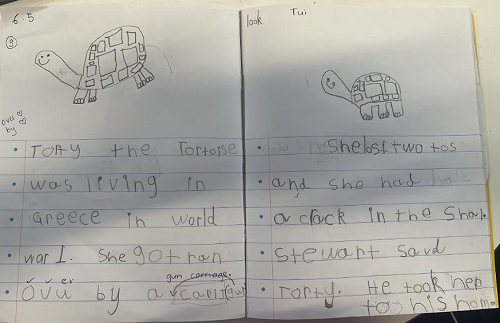 6:5
9
ovu
by
• Torty the Tortoise
• was living in
• Greece in world
• war I. She got ran
gun carriage.
• ovu by a
look Tui
• She lost two tos
• and she had
• a crack in the Shal.
• Stewart savd
• Torty. He took her
to his hom